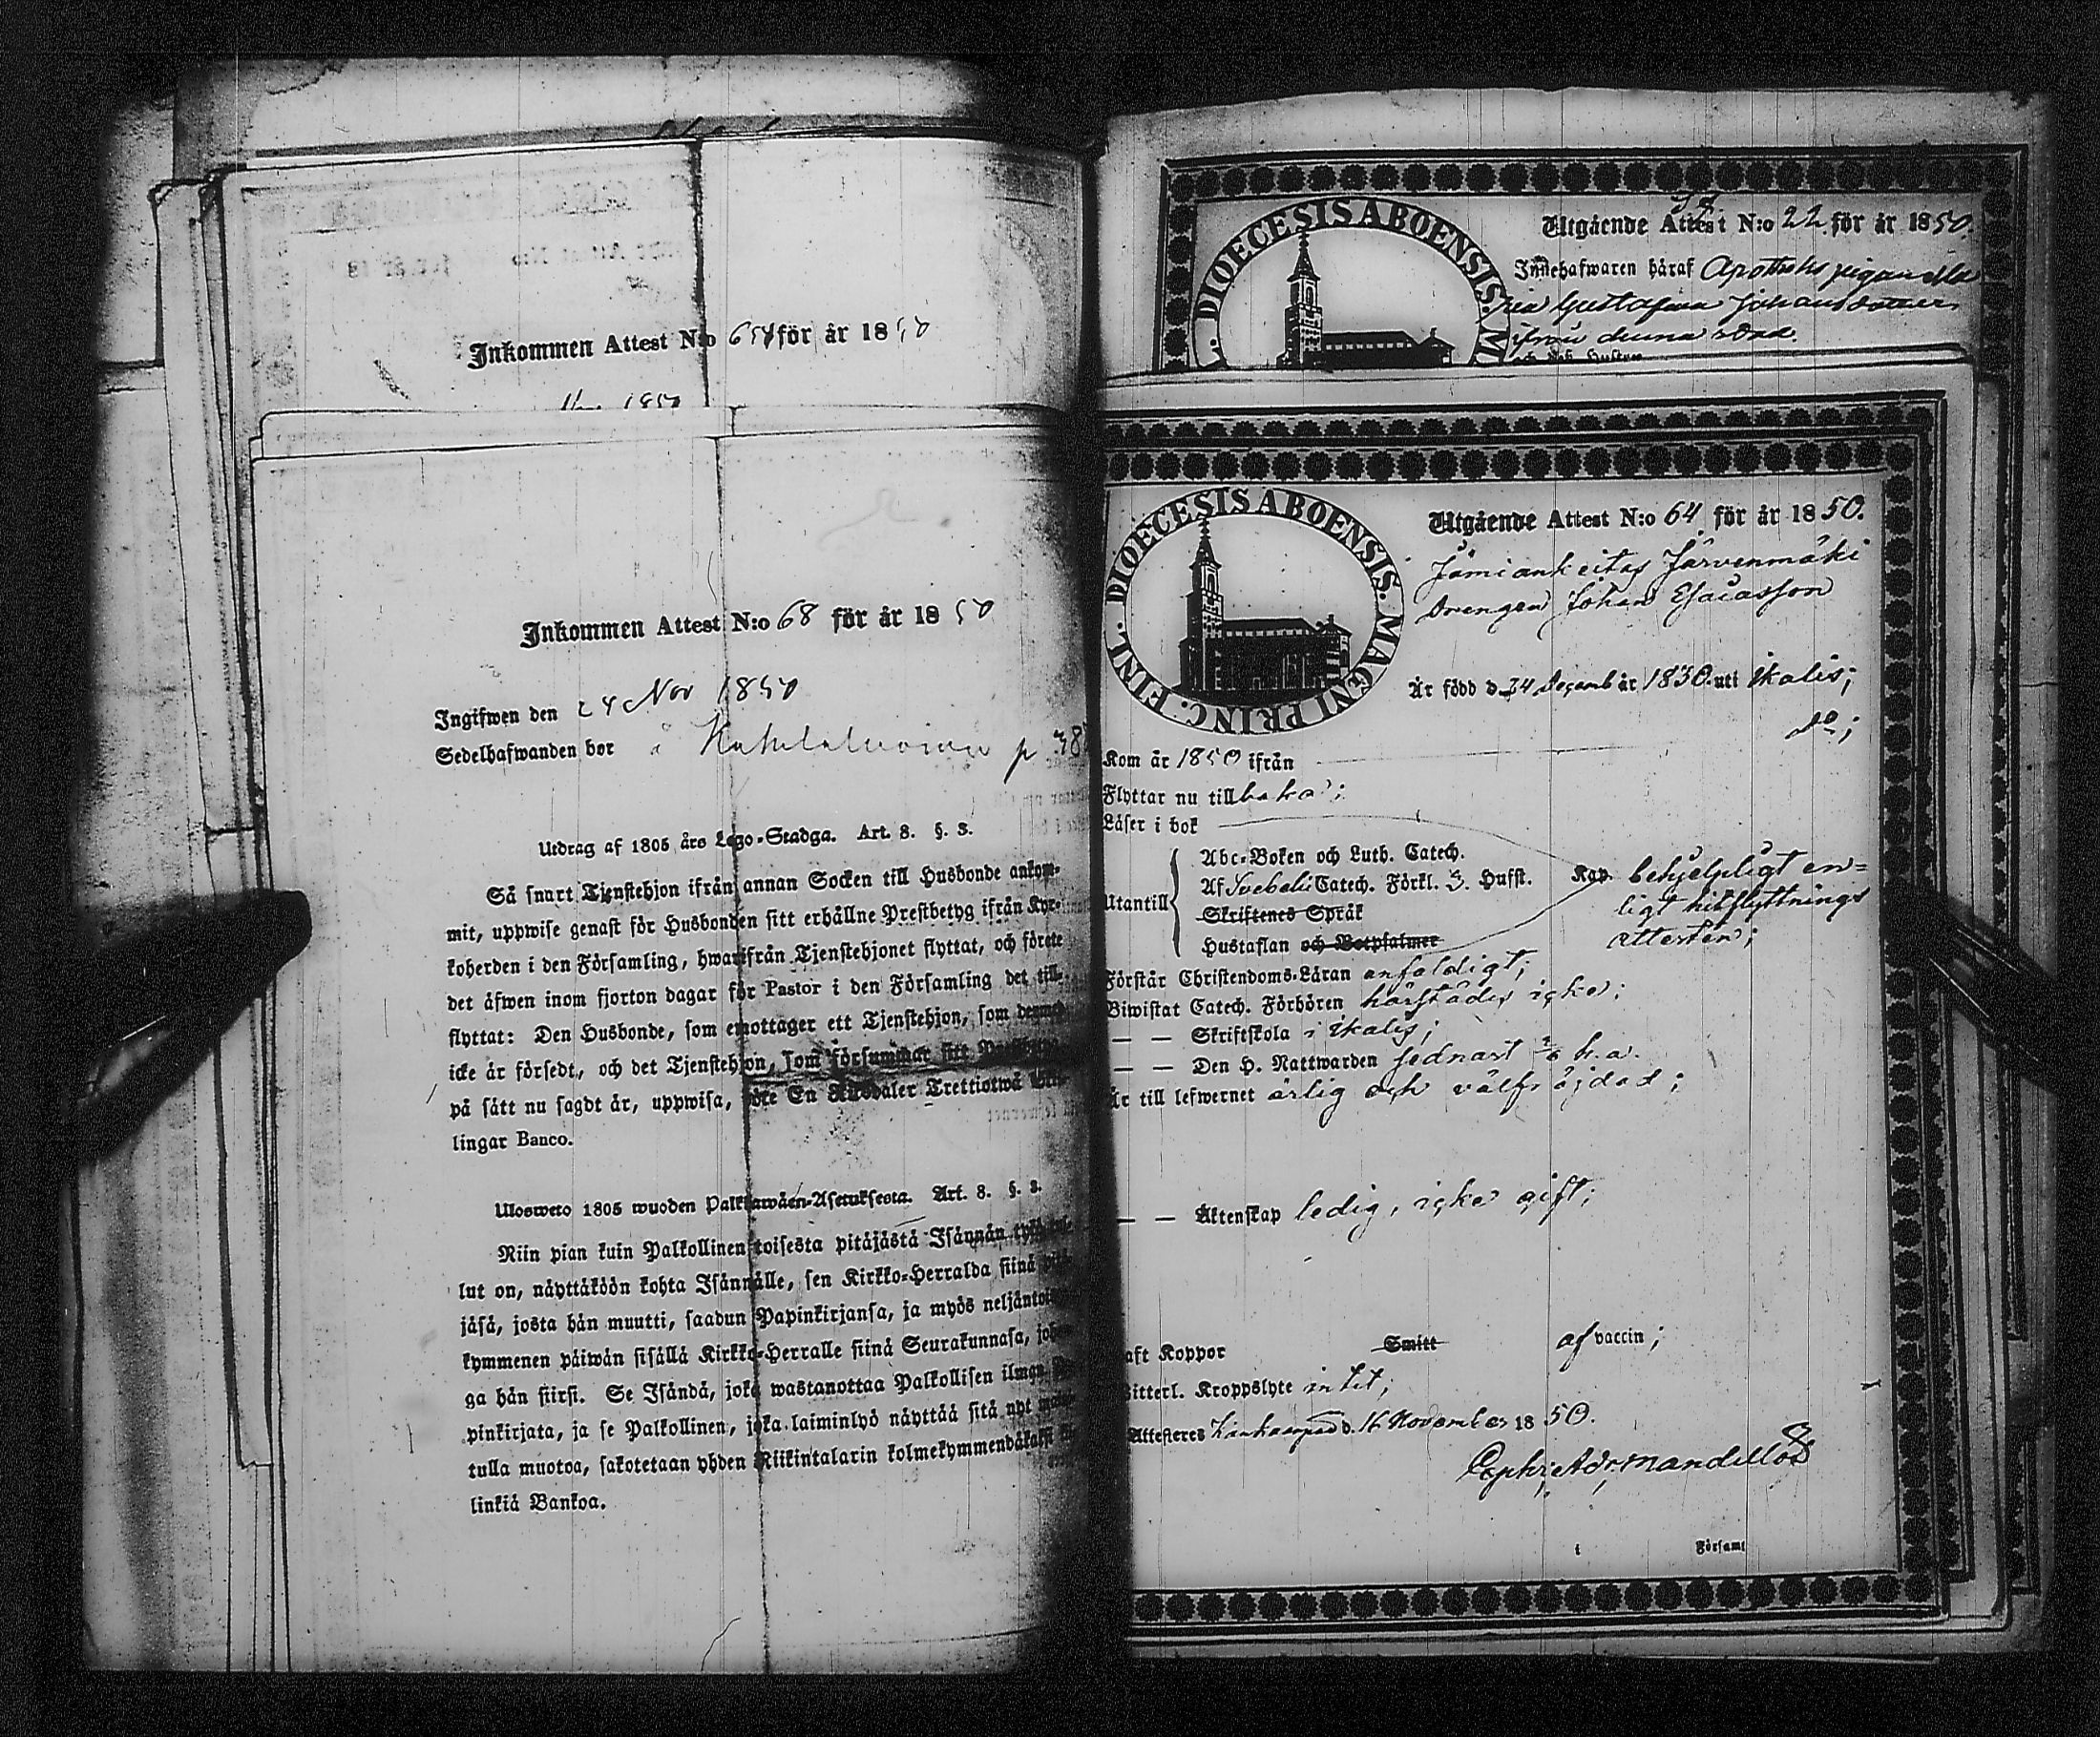 Inkommen Attest N:o 65 för år 1850
1850
Inkommen Attest N:o 68 för år 1850
Ingifwen den 24 Nov 1850
Sedelhafwanden bor å p 38
Utdrag af 1805 års Lego-Stadga. Art. 8. §. 3.
Så snart Tjenstehjon ifrån annan Socken till Husbonde ankom-
mit, uppwise genast för Husbonden sitt erhållne Prestbetyg ifrån Kyr-
koherden i den Församling, hwarifrån Tjenstehjonet flyttat, och förete
det äfwen inom fjorton dagar för Pastor i den Församling det till-
flyttat: Den Husbonde, som emottager ett Tjenstehjon, som dermed
icke är försedt, och det Tjenstehjon, som försummar sitt
på sätt nu sagdt är, uppwisa, böte En Riksdaler Trettiotwå
lingar Banco.
Ulosweto 1805 wuoden Palkkawäen-Asetuksesta. Art. 8. §. 3.
Niin pian kuin Palkollinen toisesta pitäjästä Isännän
lut on, näyttäköön kohta Isännälle, sen Kirkko-Herralda siinä
jäsä, josta hän muutti, saadun Papinkirjansa, ja myös neljäntoista
kymmenen päiwän sisällä Kirkko-Herralle siinä Seurakunnasa,
ga hän siirsi. Se Isändä, joka wastanottaa Palkollisen ilman
pinkirjata, ja se Palkollinen, joka laiminlyö näyttää sitä nyt
tulla muotoa, sakotetaan yhden Riikintalarin kolmekymmendäkaksi
linkiä Bankoa.
DIOECESIS ABOENSIS. M
Utgående Attest N:o 22 för år 1850.
Innehafwaren häraf Apotheks pigan
Gustafva Johansdotter
ifrån denna stad.
och dess Hustru
DIOECESIS ABOENSIS. MAGNI PRINC. FINL.
Utgående Attest N:o 64 för år 1850.
Jämiankeitas Järvenmäki
Drengen Johan Esaiasson
Är född d. 24 Decemb år 1830. uti Ikalis;
do;
Kom år 1850 ifrån
Flyttar nu tillbaka;
Läser i bok
Abc-Boken och Luth. Catech.
Af Svebelii Catech. Förkl. 3. Hufst. Kap behjelpligt en-
Utantill Skriftenes Språk ligt hitflyttnings
Hustaflan och Botpsalmer attesten;
Förstår Christendoms-Läran enfaldigt;
Biwistat Catech. Förhören härstädes icke;
— — Skriftskola i Ikalis;
— — Den H. Nattwarden sednast h. a.
Är till lefwernet ärlig och välfräjdad;
— — Äktenskap ledig, icke gift;
aft Koppor Smitt af vaccin;
Witterl. Kroppslyte intet;
Attesteres Kankaanpää d. 16 November 1850.
Mandellöf
i Församl